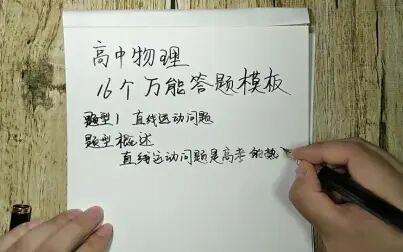 高中物理
16个万能答题模板
题型1 直线运动问题
题型概述
直线运动问题是高考的热